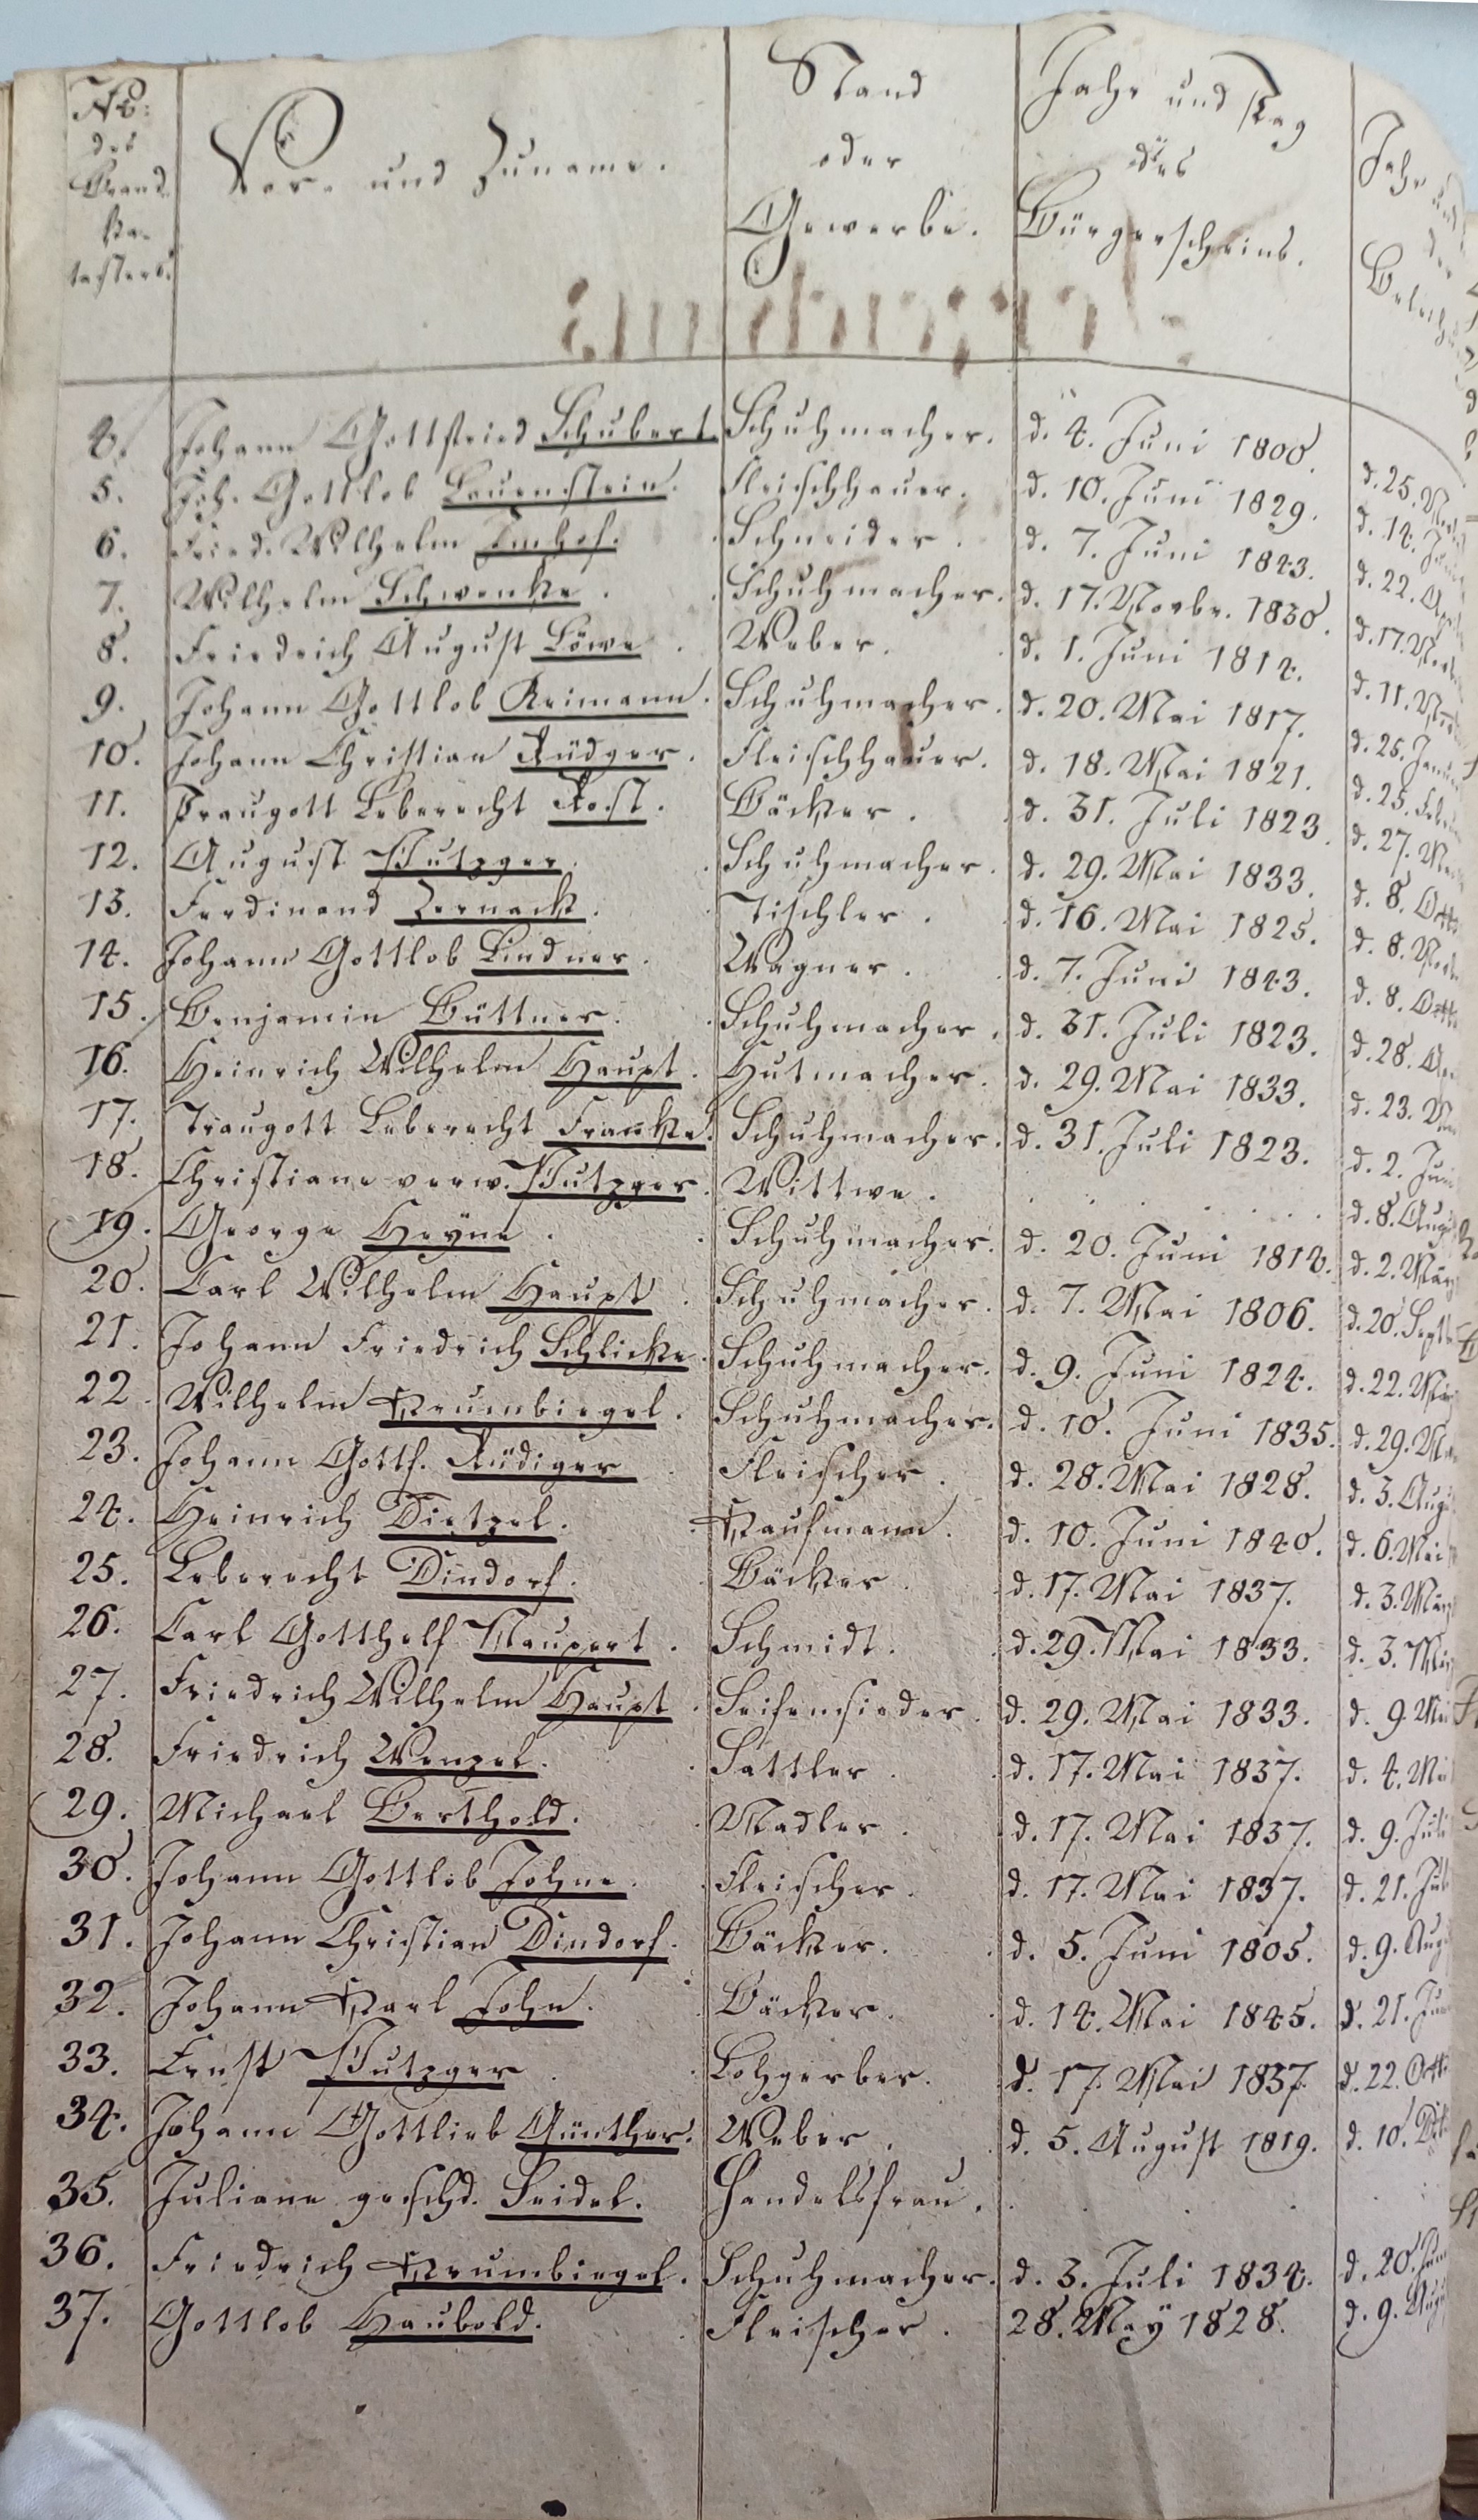 No:
des
Brand-
Ka-
tasters.
Vor- und Zuname.
Stand
oder
Gewerbe.
Jahr und Tag
des
Bürgerscheins.
Jahr und
der
4. Johann Gottfried Schubert. Schuhmacher. d. 4. Juni 1800.
5. Joh. Gottlob Lauenstein. Fleischhauer. d. 10. Juni 1829. d. 25.
6. Fried. Wilhelm Imhof. Schneider. d. 7. Juni 1843. d. 14.
7. Wilhelm Schwenke. Schuhmacher. d. 17. Novbr. 1830. d. 22.
8. Friedrich August Löwe. Weber. d. 1. Juni 1814. d. 17.
9. Johann Gottlob Reimann. Schuhmacher. d. 20. Mai 1817. d. 11.
10. Johann Christian Rüdger. Fleischhauer. d. 18. Mai 1821. d. 25.
11. Traugott Leberecht Rost. Bäcker. d. 31. Juli 1823. d. 25.
12. August Putzger. Schuhmacher. d. 29. Mai 1833. d. 27.
13. Ferdinand Zernack. Tischler. d. 16. Mai 1825. d. 8.
14. Johann Gottlob Lindner. Wagner. d. 7. Juni 1843. d. 8.
15. Benjamin Büttner. Schuhmacher. d. 31. Juli 1823. d. 8.
16. Heinrich Wilhelm Haupt. Hutmacher. d. 29. Mai 1833. d. 28.
17. Traugott Leberecht Franke. Schuhmacher. d. 31. Juli 1823. d. 23.
18. Christiane verw. Putzger. Wittwe. d. 2.
19. George Heÿne. Schuhmacher. d. 20. Juni 1814. d. 8. Aug
20. Carl Wilhelm Haupt. Schuhmacher. d. 7. Mai 1806. d. 2. März
21. Johann Friedrich Schlicke. Schuhmacher. d. 9. Juni 1824. d. 20. Septb
22. Wilhelm Krumbiegel. Schuhmacher. d. 10. Juni 1835. d. 22.
23. Johann Gottf. Rüdiger. Fleischer. d. 28. Mai 1828. d. 29.
24. Heinrich Dietzel. Kaufmann. d. 10. Juni 1840. d. 3. Aug
25. Leberecht Dindorf. Bäcker. d. 17. Mai 1837. d. 6. Mai
26. Carl Gotthelf Naupert. Schmidt. d. 29. Mai 1833. d. 3. März
27. Friedrich Wilhelm Haupt. Seifensieder. d. 29. Mai 1833. d. 3.
28. Friedrich Wenzel. Sattler. d. 17. Mai 1837. d. 9.
29. Michael Berthold. Nadler. d. 17. Mai 1837. d. 4.
30. Johann Gottlob Johne. Fleischer. d. 17. Mai 1837. d. 9. Juli
31. Johann Christian Dindorf. Bäcker. d. 5. Juni 1805. d. 21.
32. Johann Karl John. Bäcker. d. 14. Mai 1845. d. 9. Aug
33. Ernst Putzger. Lohgerber. d. 17. Mai 1837. d. 21.
34. Johann Gottlieb Günther. Weber. d. 5. August 1819. d. 22.
35. Juliane geschd. Seidel. Handelsfrau. d. 10.
36. Friedrich Krumbiegel. Schuhmacher. d. 3. Juli 1834. d. 20.
37. Gottlob Haubold. Fleischer. 28. Maÿ 1828. d. 9.